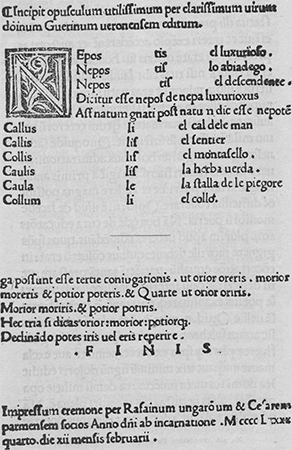 ¶Incipit opusculum utilissimum per clarissimum uirum
dominum Guerinum ueronensem editum.
NEpos tis el luxurioso.
Nepos tis lo abiadego.
Nepos tis el descendente.
Dicitur esse nepos de nepa luxuriosus
Ast natum gnati post natum dic esse nepotē
Callus li el cal dele man
Callis lis el sentier
Collis lis el montasello.
Caulis lis la herba uerda.
Caula le la stalla de le piegore
Collum li el collo.
ga possunt esse tertie coniugationis. ut orior oreris. morior
moreris & potior poteris. & Quarte ut orior oriris.
Morior moriris. & potior potiris.
Hec tria si dicas orior: morior: potiorq;
Declinādo potes iris uel eris reperire.
F I N I S.
Impressum cremone per Rafainum ungarōum & Cesarem
parmensem socios Anno dn̄i ab incarnatione .M cccc Lxxxx
quarto. die xii mensis februarii.